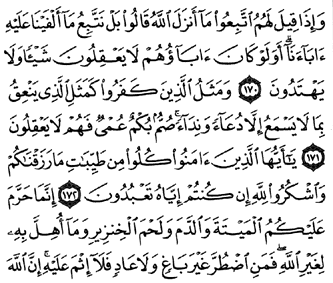 وَإِذَا قِيلَ لَهُمُ ٱتَّبِعُوا۟ مَآ أَنزَلَ ٱللَّهُ قَالُوا۟ بَلْ نَتَّبِعُ مَآ أَلْفَيْنَا عَلَيْهِ
ءَابَآءَنَآ ۗ أَوَلَوْ كَانَ ءَابَآؤُهُمْ لَا يَعْقِلُونَ شَيْـًٔا وَلَا
يَهْتَدُونَ ١٧٠ وَمَثَلُ ٱلَّذِينَ كَفَرُوا۟ كَمَثَلِ ٱلَّذِى يَنْعِقُ
بِمَا لَا يَسْمَعُ إِلَّا دُعَآءً وَنِدَآءً ۚ صُمٌّۢ بُكْمٌ عُمْىٌ فَهُمْ لَا يَعْقِلُونَ
١٧١ يَـٰٓأَيُّهَا ٱلَّذِينَ ءَامَنُوا۟ كُلُوا۟ مِن طَيِّبَـٰتِ مَا رَزَقْنَـٰكُمْ
وَٱشْكُرُوا۟ لِلَّهِ إِن كُنتُمْ إِيَّاهُ تَعْبُدُونَ ١٧٢ إِنَّمَا حَرَّمَ
عَلَيْكُمُ ٱلْمَيْتَةَ وَٱلدَّمَ وَلَحْمَ ٱلْخِنزِيرِ وَمَآ أُهِلَّ بِهِۦ
لِغَيْرِ ٱللَّهِ ۖ فَمَنِ ٱضْطُرَّ غَيْرَ بَاغٍ وَلَا عَادٍ فَلَآ إِثْمَ عَلَيْهِ ۚ إِنَّ ٱللَّهَ